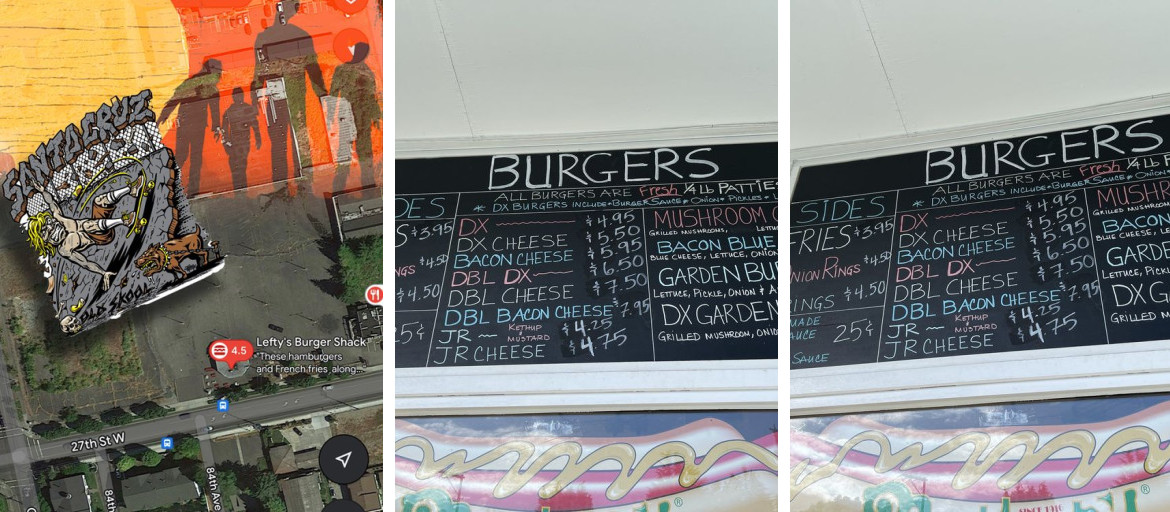 SANTA CRUZ
OLD SKOOL
Lefty's Burger Shack
"These hamburgers
and French fries along..."
4.5
27th St W
84th
84th Ave
BURGERS
ALL BURGERS ARE Fresh 1/4 LB PATTIE
* DX BURGERS INCLUDE • BURGER SAUCE • ONION • PICKLES •
DES
S $3.95
NGS $4.50
$4.50
25¢
DX $4.95
DX CHEESE $5.50
BACON CHEESE $5.95
DBL DX $6.50
DBL CHEESE $7.50
DBL BACON CHEESE $7.95
JR KETHUP MUSTARD $4.25
JR CHEESE $4.75
MUSHROOM
GRILLED MUSHROOMS,
BACON BLUE
BLUE CHEESE, LETTUCE, ONION
GARDEN BU
LETTUCE, PICKLE, ONION &
DX GARDEN
GRILLED MUSHROOM, ONIO
BURGERS
ALL BURGERS ARE Fresh 1/4 LB
* DX BURGERS INCLUDE • BURGER SAUCE • ONION
SIDES
FRIES $3.95
NION RINGS $4.50
INGS $4.50
MADE
SAUCE 25¢
SAUCE
DX $4.95
DX CHEESE $5.50
BACON CHEESE $5.95
DBL DX $6.50
DBL CHEESE $7.50
DBL BACON CHEESE $7.95
JR KETHUP MUSTARD $4.25
JR CHEESE $4.75
MUSHR
GRILLED MUSHROOMS
BACON
BLUE CHEESE, LE
GARDE
LETTUCE, PICKLE
DX G
GRILLED MUSH
SINCE 1910